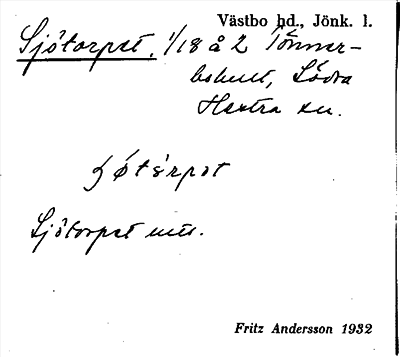 Västbo hd., Jönk. l.
Sjötorpet, 1/18 å 2 Tönner-
bohult, Södra
Hestra sn.
ʃǿtèrpət
Sjötorpet mtl.
Fritz Andersson 1932